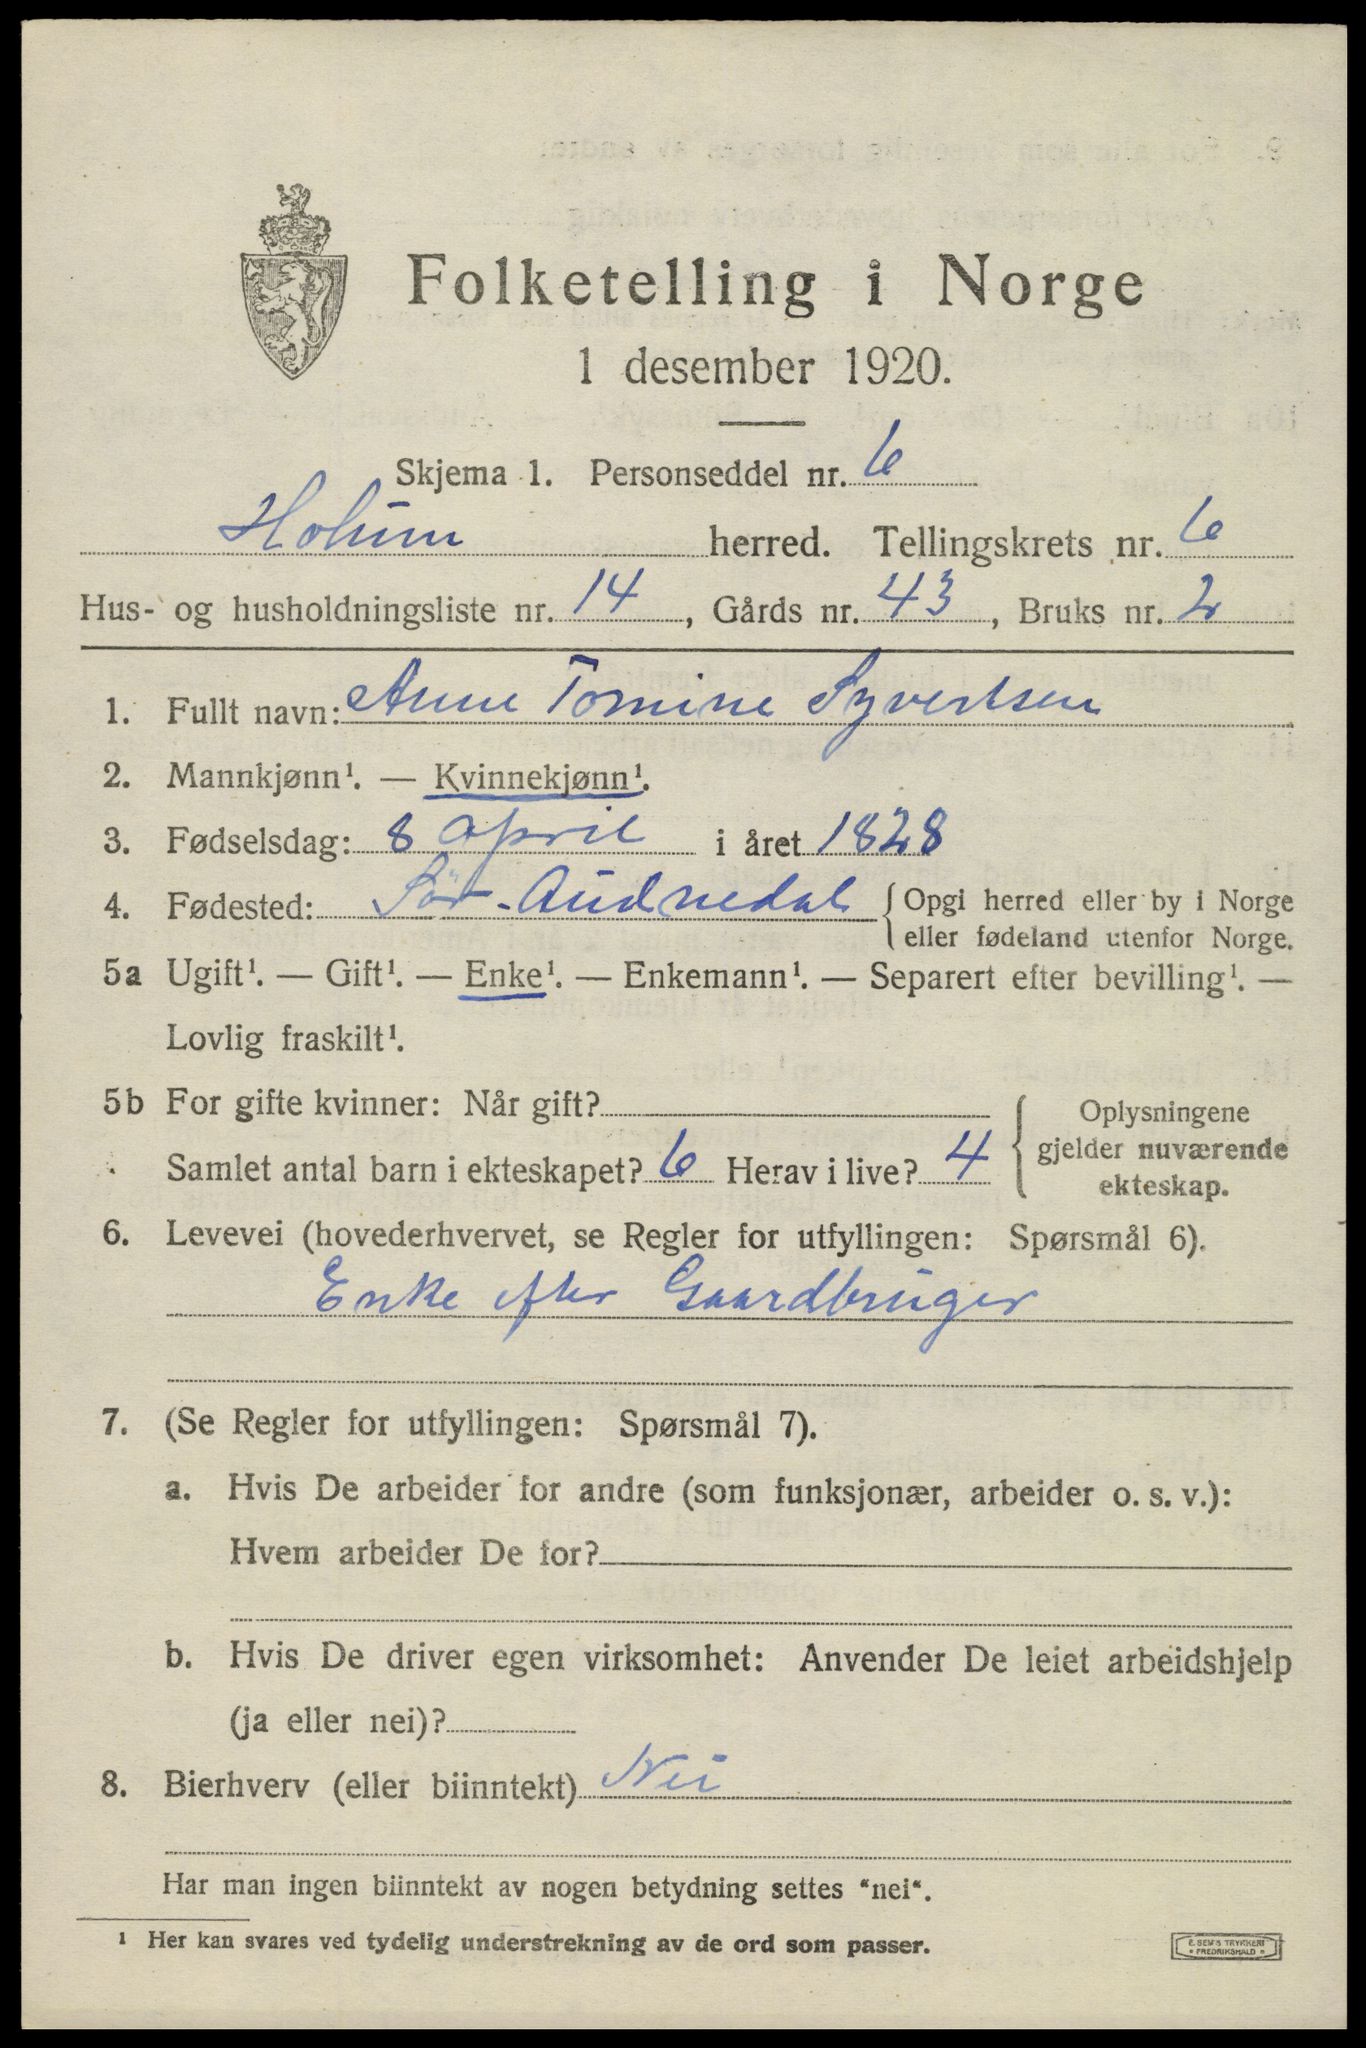 Folketelling i Norge
1 desember 1920.
Skjema 1. Personseddel nr. 6
Holum herred. Tellingskrets nr. 6
Hus- og husholdningsliste nr. 14, Gårds nr. 43, Bruks nr. 2
1. Fullt navn: Anne Tomine Syvertsen
2. Mannkjønn¹. — Kvinnekjønn¹.
3. Fødselsdag: 8 april i året 1828
4. Fødested: Sör-Audnedal {Opgi herred eller by i Norge
eller fødeland utenfor Norge.
5a Ugift¹. — Gift¹. — Enke¹. — Enkemann¹. — Separert efter bevilling¹. —
Lovlig fraskilt¹.
5b For gifte kvinner: Når gift?
Samlet antal barn i ekteskapet? 6 Herav i live? 4
Oplysningene
gjelder nuværende
ekteskap.
6. Levevei (hovederhvervet, se Regler for utfyllingen: Spørsmål 6).
Enke efter Gaardbruger
7. (Se Regler for utfyllingen: Spørsmål 7).
a. Hvis De arbeider for andre (som funksjonær, arbeider o. s. v.):
Hvem arbeider De for?
b. Hvis De driver egen virksomhet: Anvender De leiet arbeidshjelp
(ja eller nei)?
8. Bierhverv (eller biinntekt) Nei
Har man ingen biinntekt av nogen betydning settes "nei".
¹ Her kan svares ved tydelig understrekning av de ord som passer.
E. SEM'S TRYKKERI
FREDRIKSHALD